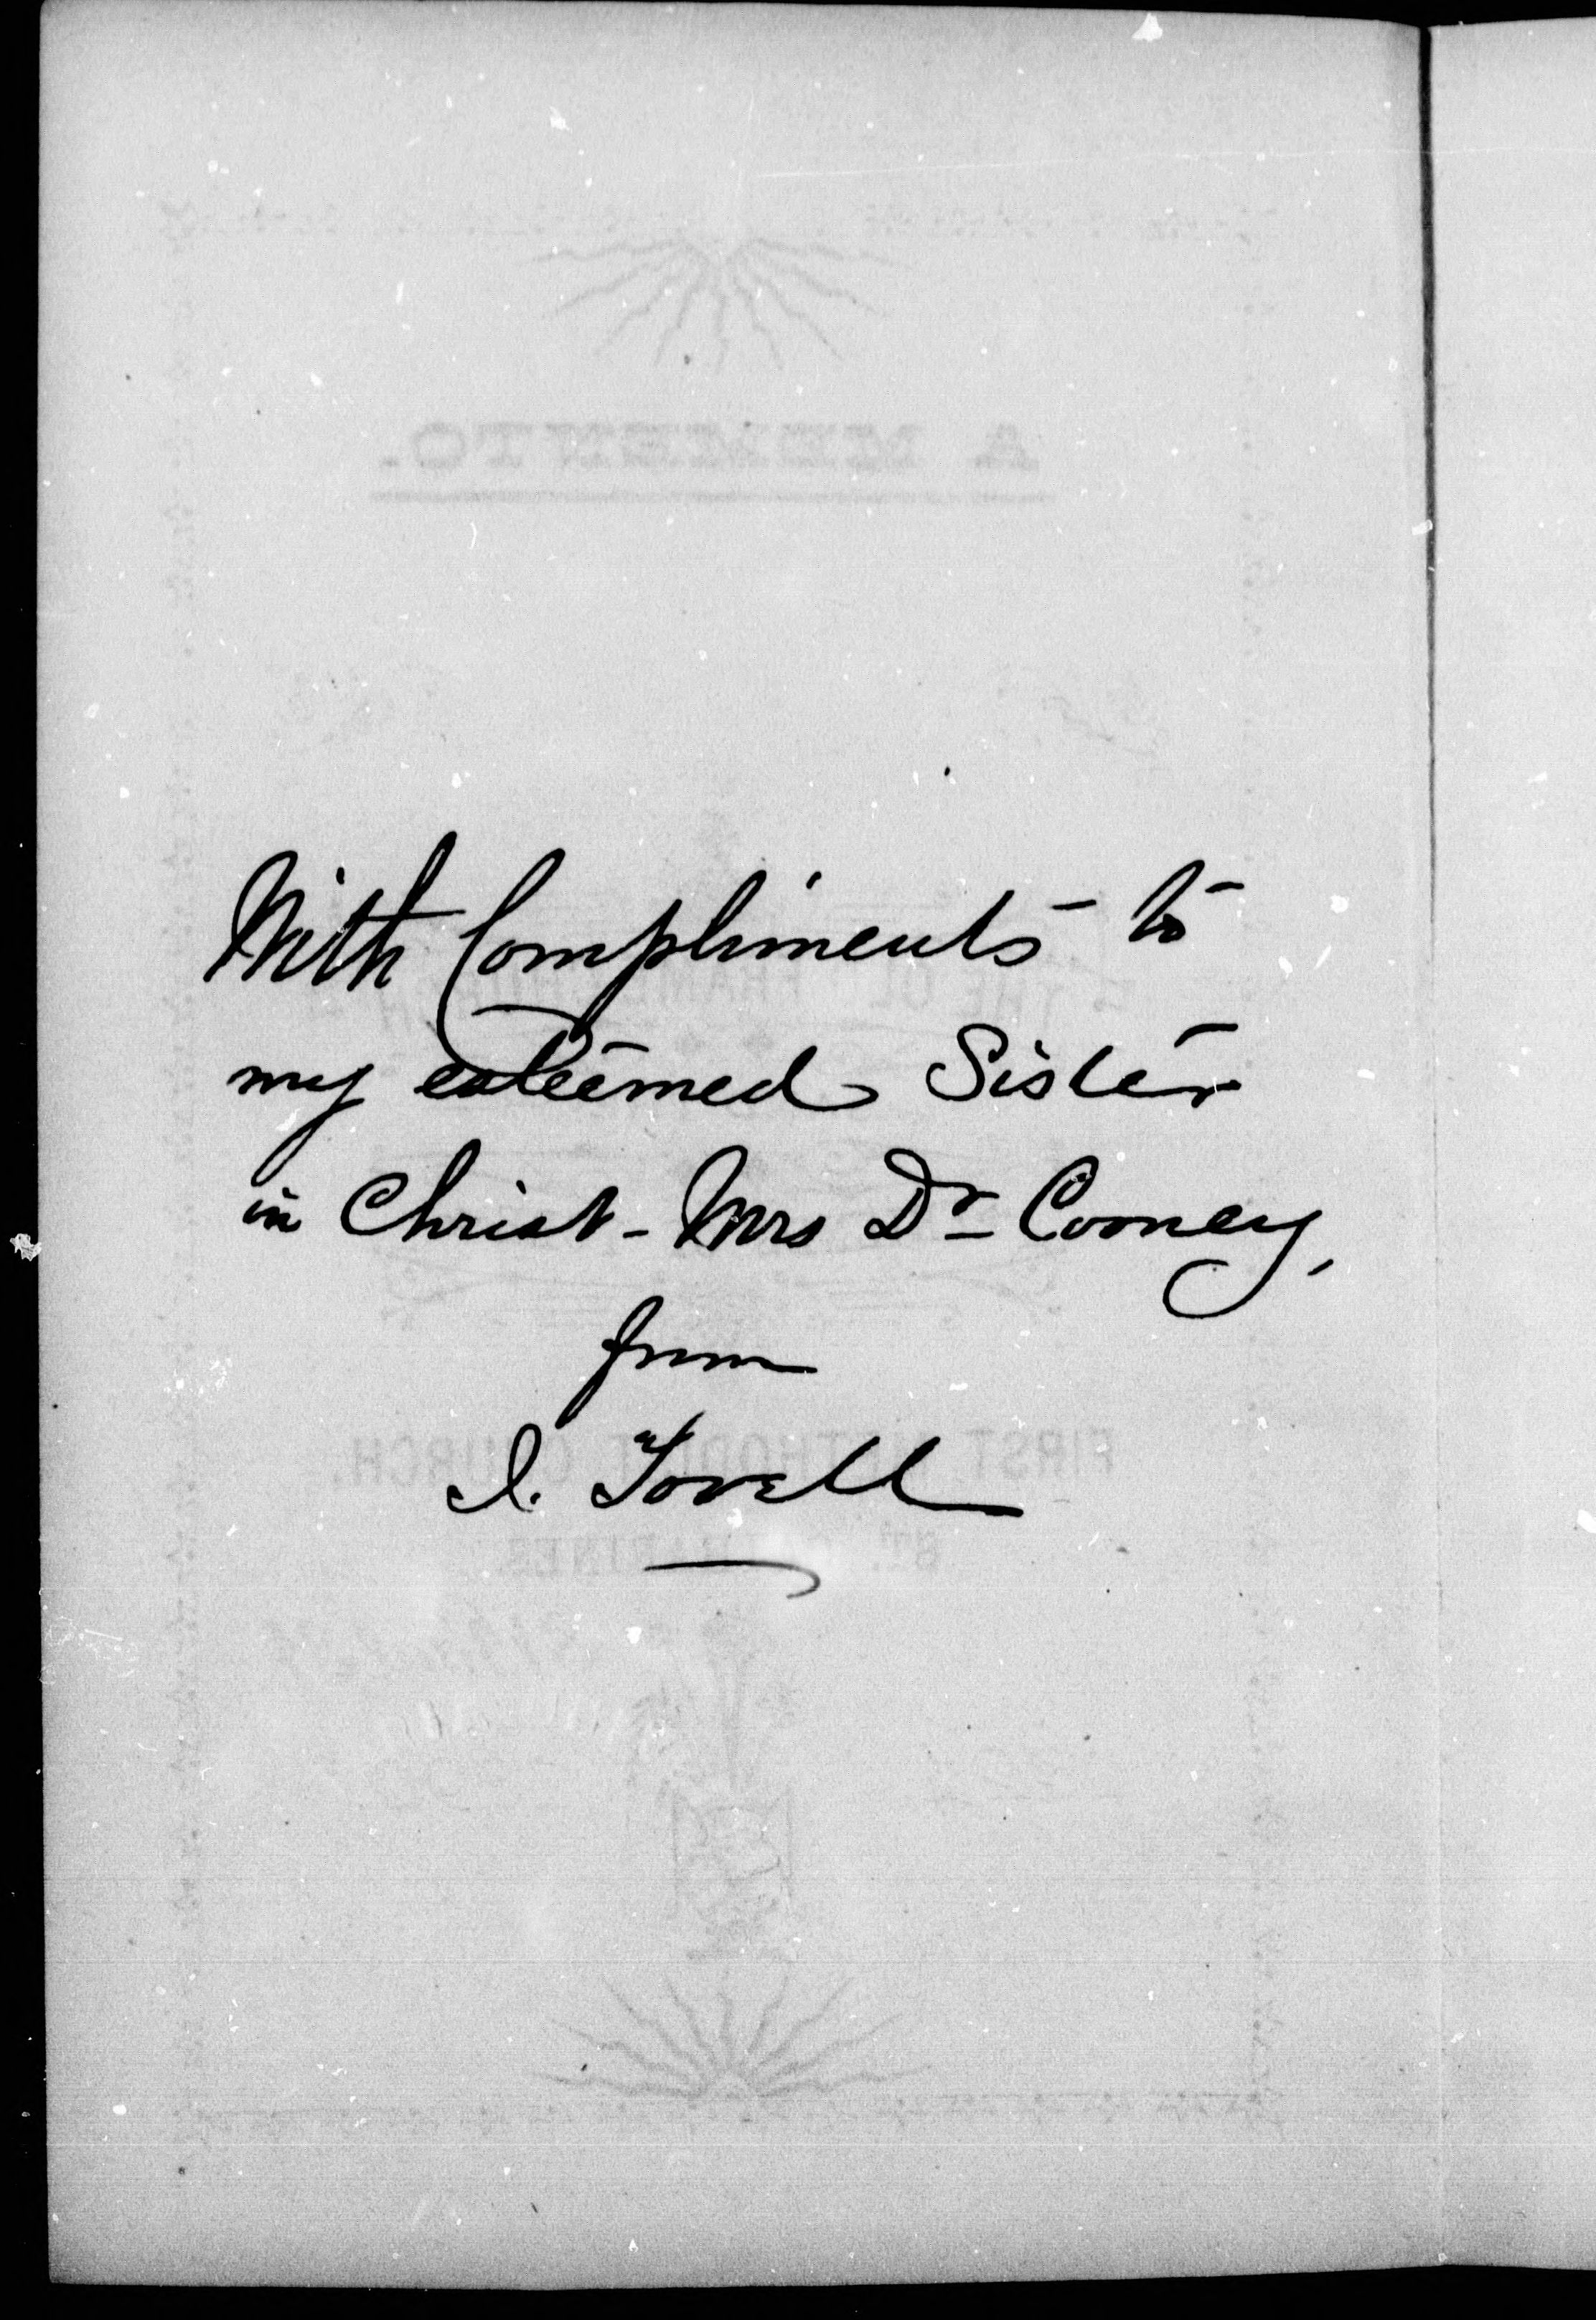 With Compliments to
my esteemed Sister
in Christ - Mrs Dr Cooney,
from
I. Tovell